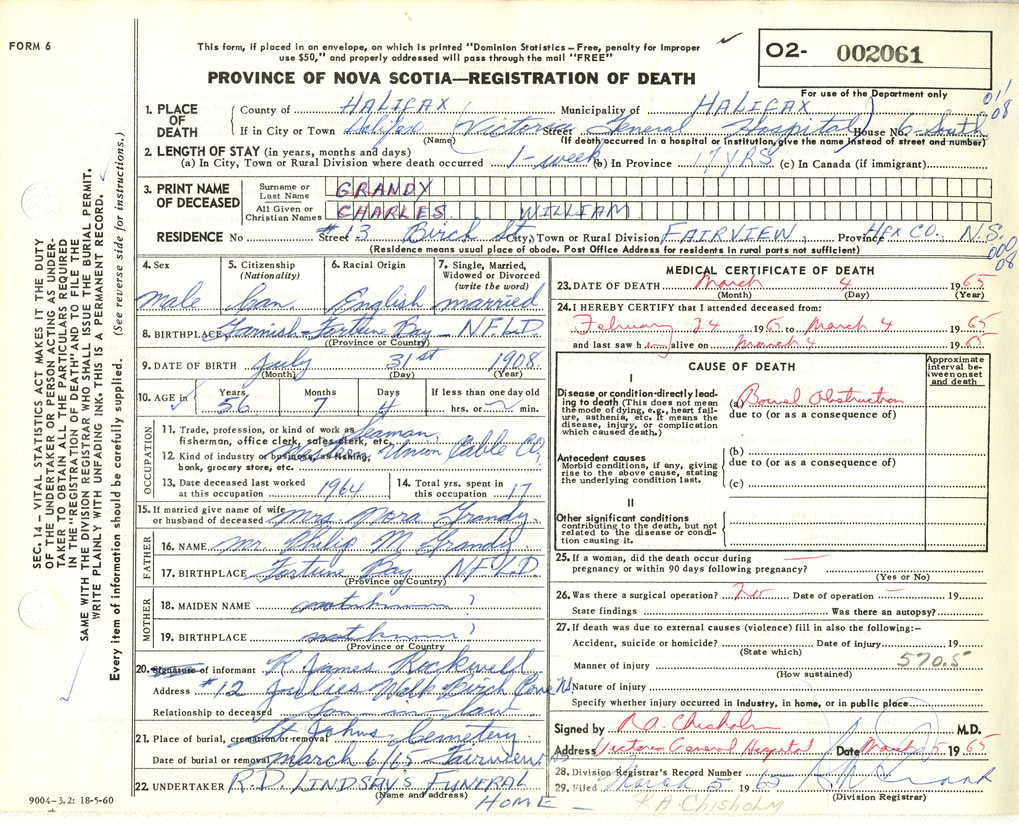 FORM 6
This form, if placed in an envelope, on which is printed "Dominion Statistics – Free, penalty for improper
use $50," and properly addressed will pass through the mail "FREE"
PROVINCE OF NOVA SCOTIA—REGISTRATION OF DEATH
O2- 002061
For use of the Department only
1. PLACE OF DEATH
County of HALIFAX Municipality of HALIFAX 01/08
If in City or Town Halifax (Victoria General Hospital) Street House No. 6 South
(Name) (If death occurred in a hospital or institution, give the name instead of street and number)
2. LENGTH OF STAY (in years, months and days)
(a) In City, Town or Rural Division where death occurred 1-week (b) In Province 17 YRS (c) In Canada (if immigrant)
3. PRINT NAME OF DECEASED
Surname or Last Name GRANDY
All Given or Christian Names CHARLES WILLIAM
RESIDENCE No Street #13 Birch St City, Town or Rural Division FAIRVIEW, Province HFX CO. N.S.
(Residence means usual place of abode. Post Office Address for residents in rural parts not sufficient)
000
08
4. Sex male
5. Citizenship (Nationality) Can.
6. Racial Origin English
7. Single, Married, Widowed or Divorced (write the word) married
8. BIRTHPLACE Garnish - Fortune Bay - NFLD.
(Province or Country)
9. DATE OF BIRTH July 31st 1908
(Month) (Day) (Year)
10. AGE in Years 56 Months 7 Days 4 If less than one day old hrs. or min.
OCCUPATION
11. Trade, profession, or kind of work as fisherman, office clerk, sales clerk, etc. Seaman
12. Kind of industry or business, as fishing, bank, grocery store, etc. Western Union Cable CO.
13. Date deceased last worked at this occupation 1964
14. Total yrs. spent in this occupation 17
15. If married give name of wife or husband of deceased Mrs. Nora Grandy.
FATHER
16. NAME Mr. Philip M Grandy.
17. BIRTHPLACE Fortune Bay NFLD.
(Province or Country)
MOTHER
18. MAIDEN NAME not known ?
19. BIRTHPLACE not known ?
(Province or Country
20. Signature of informant R. James Rockwell
Address #12 Julies Walk Birch Cove NS
Relationship to deceased Son-in-law
21. Place of burial, cremation or removal St Johns Cemetery.
Date of burial or removal March 6/65 Fairview NS
22. UNDERTAKER R.D. LINDSAY'S FUNERAL
(Name and address)
HOME –
9004-3.2: 18-5-60
MEDICAL CERTIFICATE OF DEATH
23. DATE OF DEATH March 4 1965
(Month) (Day) (Year)
24. I HEREBY CERTIFY that I attended deceased from:
February 24 1965 to March 4 1965
and last saw him alive on March 4 1965
CAUSE OF DEATH
Approximate interval between onset and death
I
Disease or condition directly leading to death (This does not mean the mode of dying, e.g., heart failure, asthenia, etc. it means the disease, injury, or complication which caused death.)
(a) Bowel Obstruction
due to (or as a consequence of)
Antecedent causes
Morbid conditions, if any, giving rise to the above cause, stating the underlying condition last.
(b)
due to (or as a consequence of)
(c)
II
Other significant conditions contributing to the death, but not related to the disease or condition causing it.
25. If a woman, did the death occur during pregnancy or within 90 days following pregnancy? —
(Yes or No)
26. Was there a surgical operation? No Date of operation — 19
State findings Was there an autopsy?
27. If death was due to external causes (violence) fill in also the following:-
Accident, suicide or homicide? Date of injury 19
(State which)
570.5
Manner of injury
(How sustained)
Nature of injury
Specify whether injury occurred in industry, in home, or in public place
Signed by R.A. Chisholm M.D.
Address Victoria General Hospital Date March 5 1965
28. Division Registrar's Record Number
29. Filed March 5 1965
(Division Registrar)
R A CHISHOLM
SEC. 14 – VITAL STATISTICS ACT MAKES IT THE DUTY
OF THE UNDERTAKER OR PERSON ACTING AS UNDER-
TAKER TO OBTAIN ALL THE PARTICULARS REQUIRED
IN THE "REGISTRATION OF DEATH" AND TO FILE THE
SAME WITH THE DIVISION REGISTRAR WHO SHALL ISSUE THE BURIAL PERMIT.
WRITE PLAINLY WITH UNFADING INK. THIS IS A PERMANENT RECORD.
Every item of information should be carefully supplied. (See reverse side for instructions.)